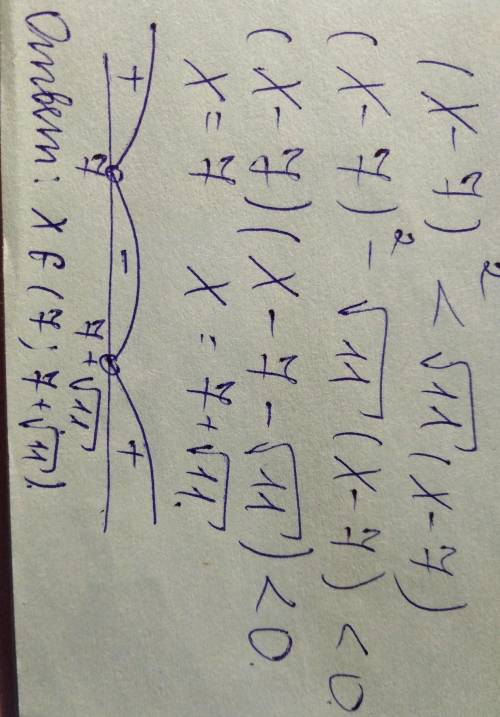 (x-7)² < √11(x-7)
(x-7)² - √11(x-7) < 0.
(x-7)(x-7-√11) < 0.
x = 7 x = 7+√11.
+ - +
7 7+√11
Ответ: x ∈ (7; 7+√11).